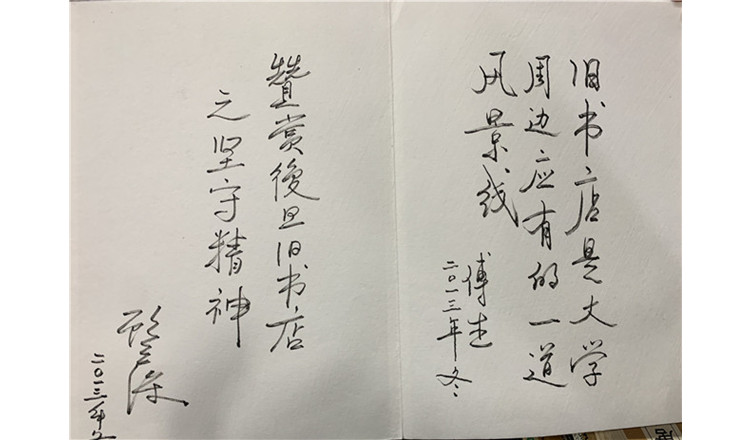 旧书店是大学
周边应有的一道
风景线
傅杰
二〇一三年冬
赞赏復旦旧书店
之坚守精神
顾云深
二〇一三年